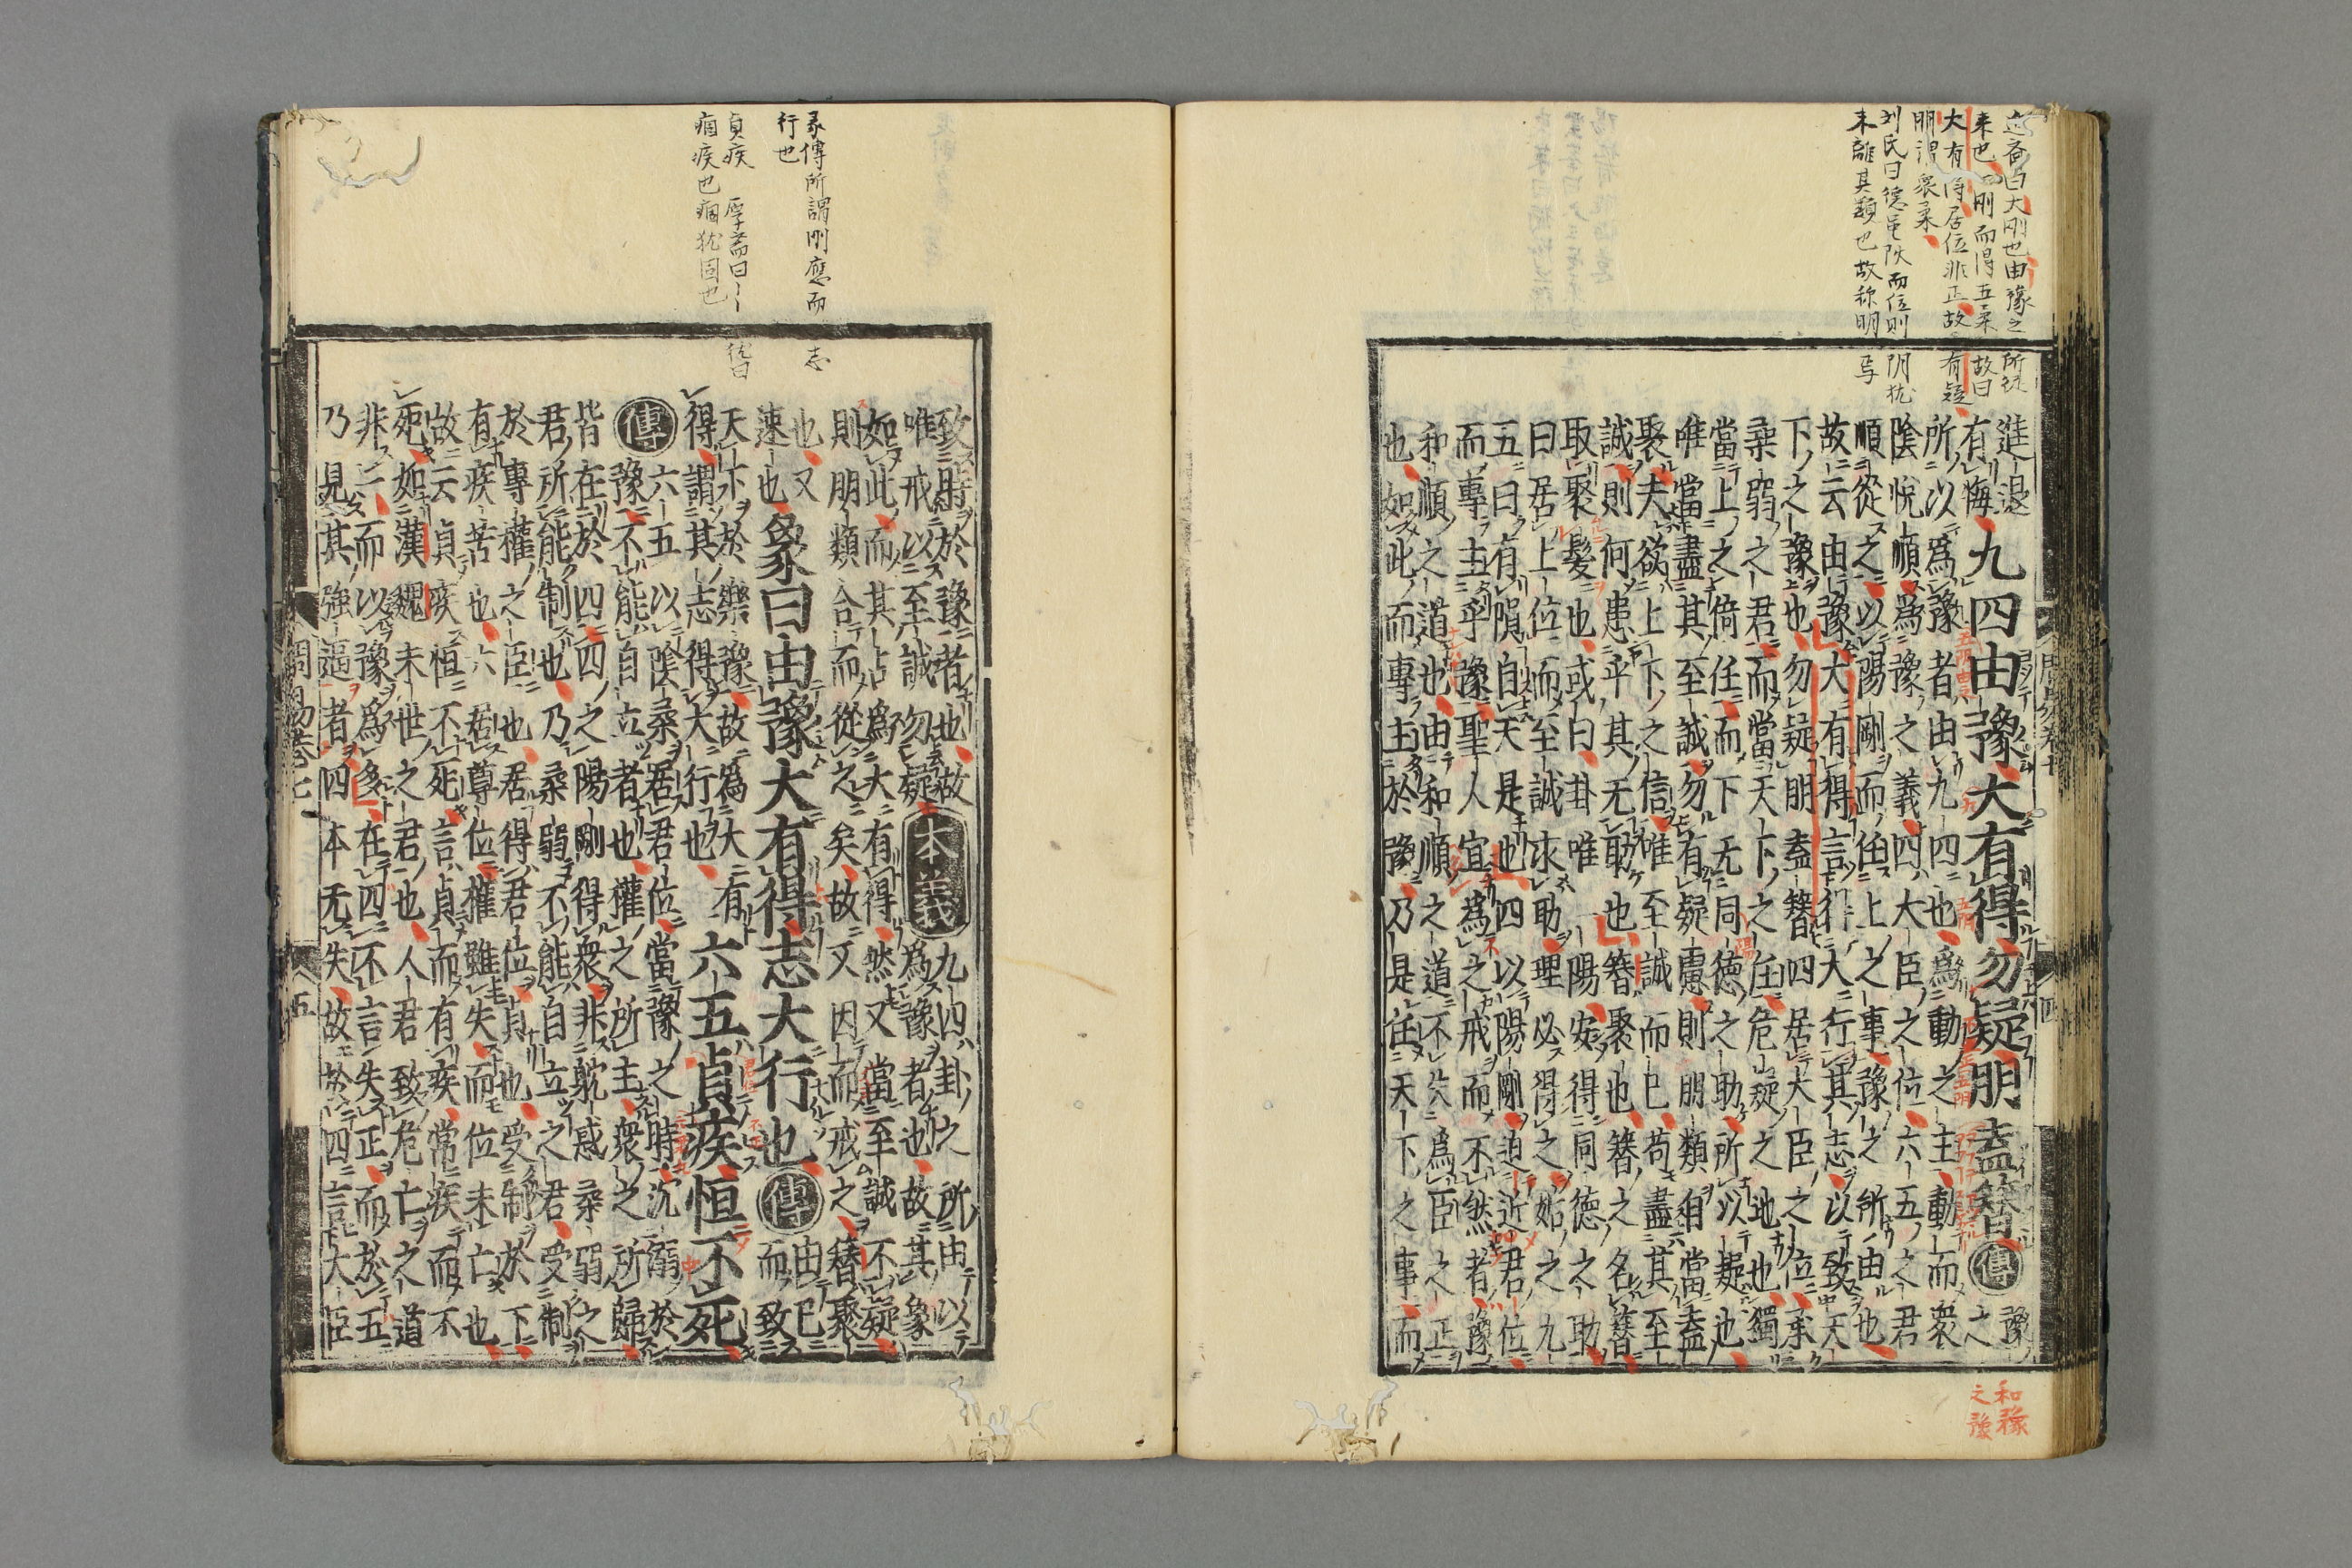 進退
有悔九四由豫大有得勿疑朋盍簪傳豫之
所以爲豫者由九四也爲動之主動而衆
陰悅順爲豫之義四大臣之位六五之君
順從之以陽剛而任上之事豫之所由也
故云由豫大有得言得大行其志以致天
下之豫也勿疑朋盍簪四居大臣之位承
柔弱之君而當天下之任危疑之地也獨
當上之倚任而下无同德之助所以疑也
唯當盡其至誠勿有疑慮則朋類自當盍
聚夫欲上下之信唯至誠而已苟盡其至
誠則何患乎其无助也簪聚也簪之名簪
取聚髮也或曰卦唯一陽安得同德之助
曰居上位而至誠求助理必得之姤之九
五曰有隕自天是也四以陽剛迫近君位
而專主乎豫聖人宜爲之戒而不然者豫
和順之道也由和順之道不失爲臣之正
也如此而專主於豫乃是任天下之事而
致時於豫者也故
唯戒以至誠勿疑本義九四卦之所由以
爲豫者也故其象
如此而其占爲大有得然又當至誠不疑
則朋類合而從之矣故又因而戒之簪聚
也又
速也象曰由豫大有得志大行也傳由已
而致
天下於樂豫故爲大有六五貞疾恒不死
得謂其志得大行也
傳六五以陰柔居君位當豫之時沉溺於
豫不能自立者也權之所主衆之所歸
皆在於四四之陽剛得衆非耽惑柔弱之
君所能制也乃柔弱不能自立之君受制
於專權之臣也居得君位貞也受制於下
有疾苦也六居尊位權雖失而位未亡也
故云貞疾恒不死言貞而有疾常疾而不
死如漢魏末世之君也人君致危亡之道
非一而以豫爲多在四不言失正而於五
乃見其強逼者四本无失故於四言大臣
周易卷七
五
彖傳所謂剛應而志
行也
貞疾 厚斋曰
痼疾也痼犹固也
和豫
之豫